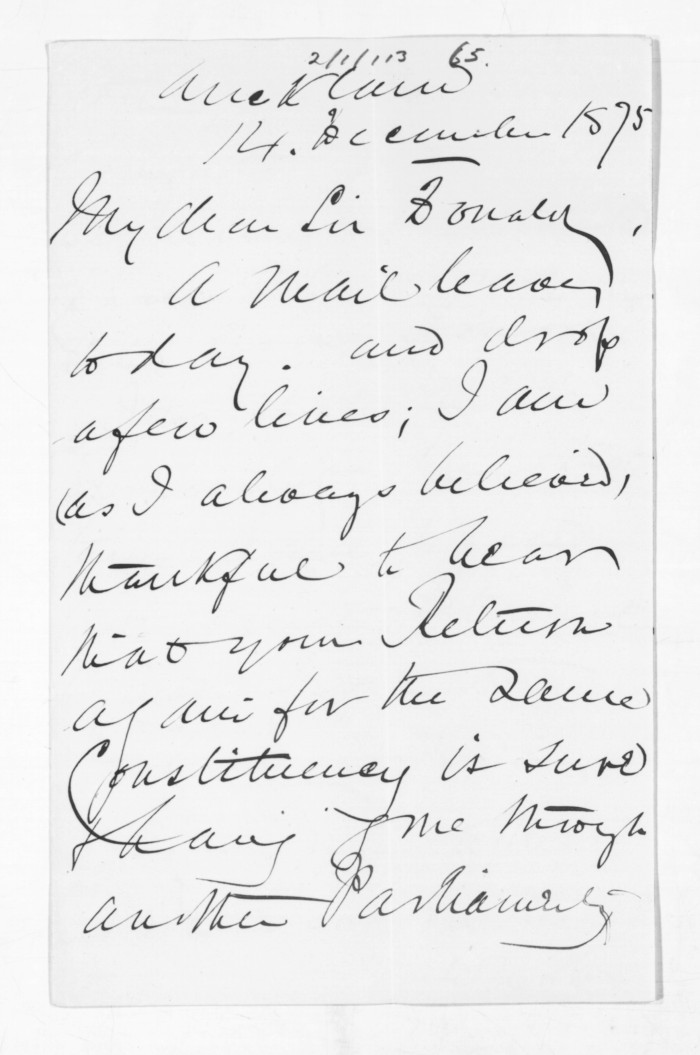 2/1/113 65.
Auckland
14. December 1875
My dear Sir Donald,
A Mail leaves
today. and drop
a few lines; I am
(as I always believed,
thankful to hear
that your Return
again for the same
Constituency is sure
& having gone through
another